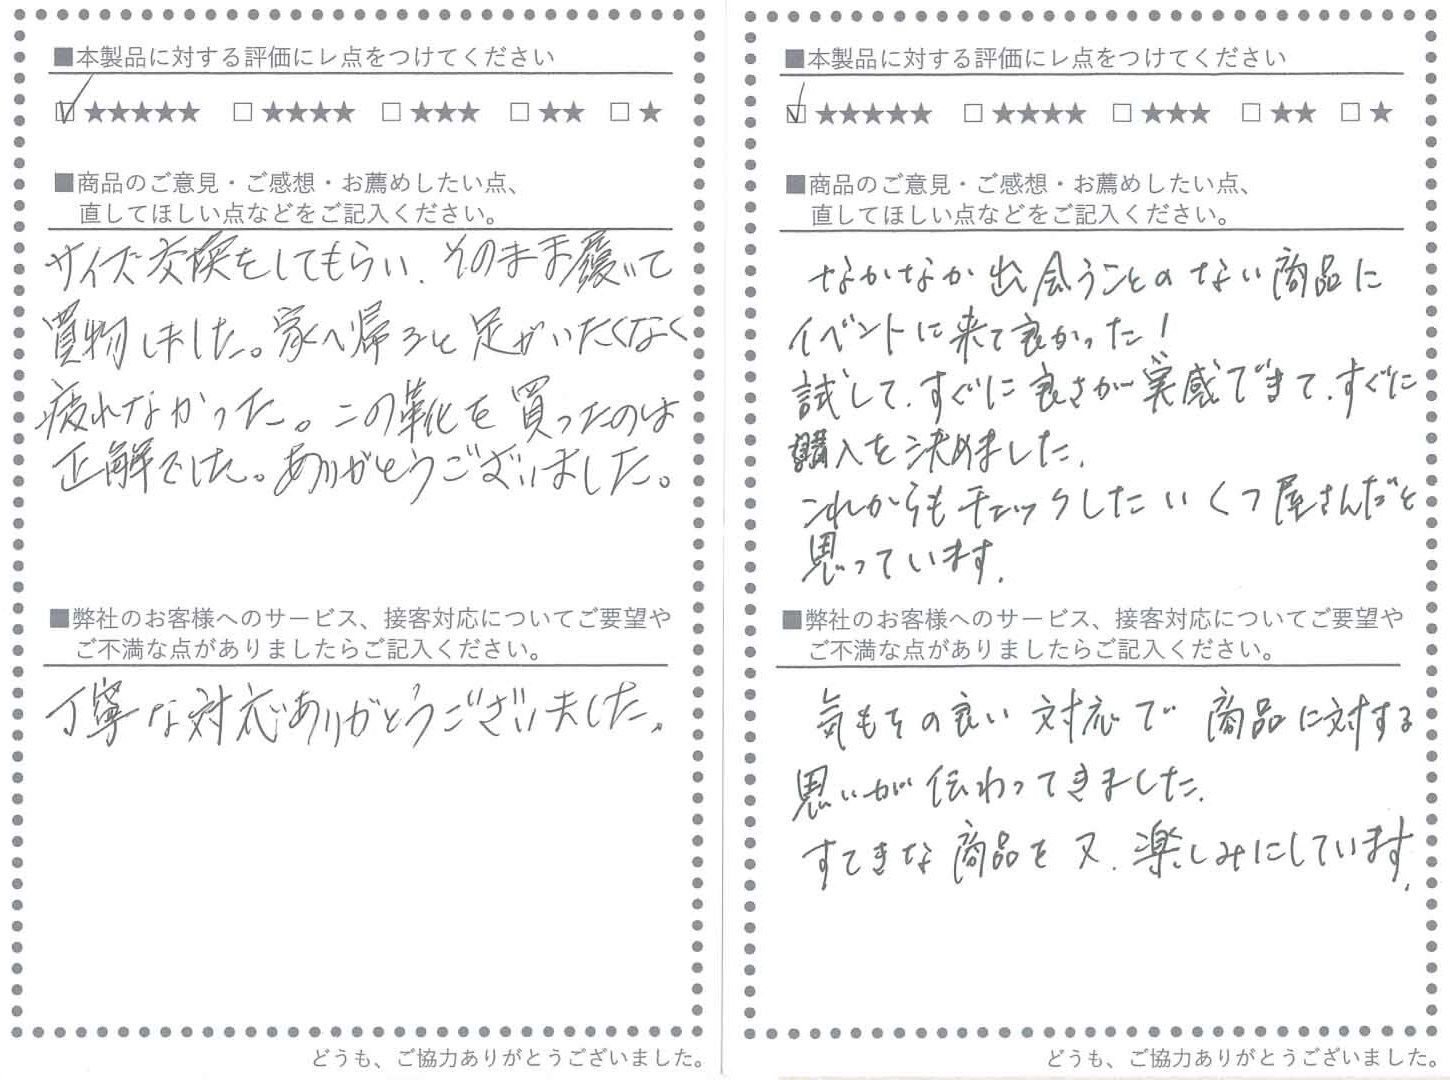 ■本製品に対する評価にレ点をつけてください
☑★★★★★ □★★★★ □★★★ □★★ □★
■商品のご意見・ご感想・お薦めしたい点、
直してほしい点などをご記入ください。
サイズ交換をしてもらい、そのまま履いて
買物しました。家へ帰ると足がいたくなく
疲れなかった。この靴を買ったのは
正解でした。ありがとうございました。
■弊社のお客様へのサービス、接客対応についてご要望や
ご不満な点がありましたらご記入ください。
丁寧な対応ありがとうございました。
どうも、ご協力ありがとうございました。
■本製品に対する評価にレ点をつけてください
☑★★★★★ □★★★★ □★★★ □★★ □★
■商品のご意見・ご感想・お薦めしたい点、
直してほしい点などをご記入ください。
なかなか出会うことのない商品に
イベントに来て良かった!
試して、すぐに良さが実感できて、すぐに
購入を決めました。
これからもチェックしたいくつ屋さんだと
思っています。
■弊社のお客様へのサービス、接客対応についてご要望や
ご不満な点がありましたらご記入ください。
気もその良い対応で商品に対する
思いが伝わってきました。
すてきな商品を又、楽しみにしています。
どうも、ご協力ありがとうございました。